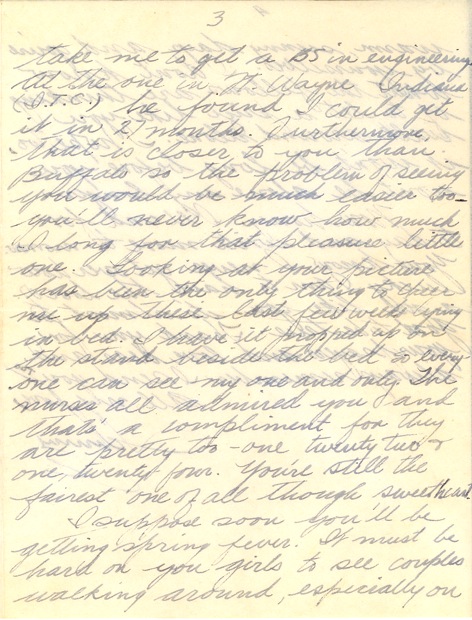 3
take me to get a BS in engineering.
At the one in Ft. Wayne Indiana
(I.T.C.) he found I could get
it in 27 months. Furthermore,
that is closer to you than
Buffalo so the problem of seeing
you would be much easier too-
you'll never know how much
I long for that pleasure little
one. Looking at your picture
has been the only thing to cheer
me up these last few weeks lying
in bed. I have it propped up on
the stand beside the bed so every-
one can see my one and only. The
nurses all admired you and
that's a compliment for they
are pretty too - one twenty two &
one, twenty four. You're still the
fairest one of all though sweetheart.
I suppose soon you'll be
getting spring fever. It must be
hard on you girls to see couples
walking around, especially on